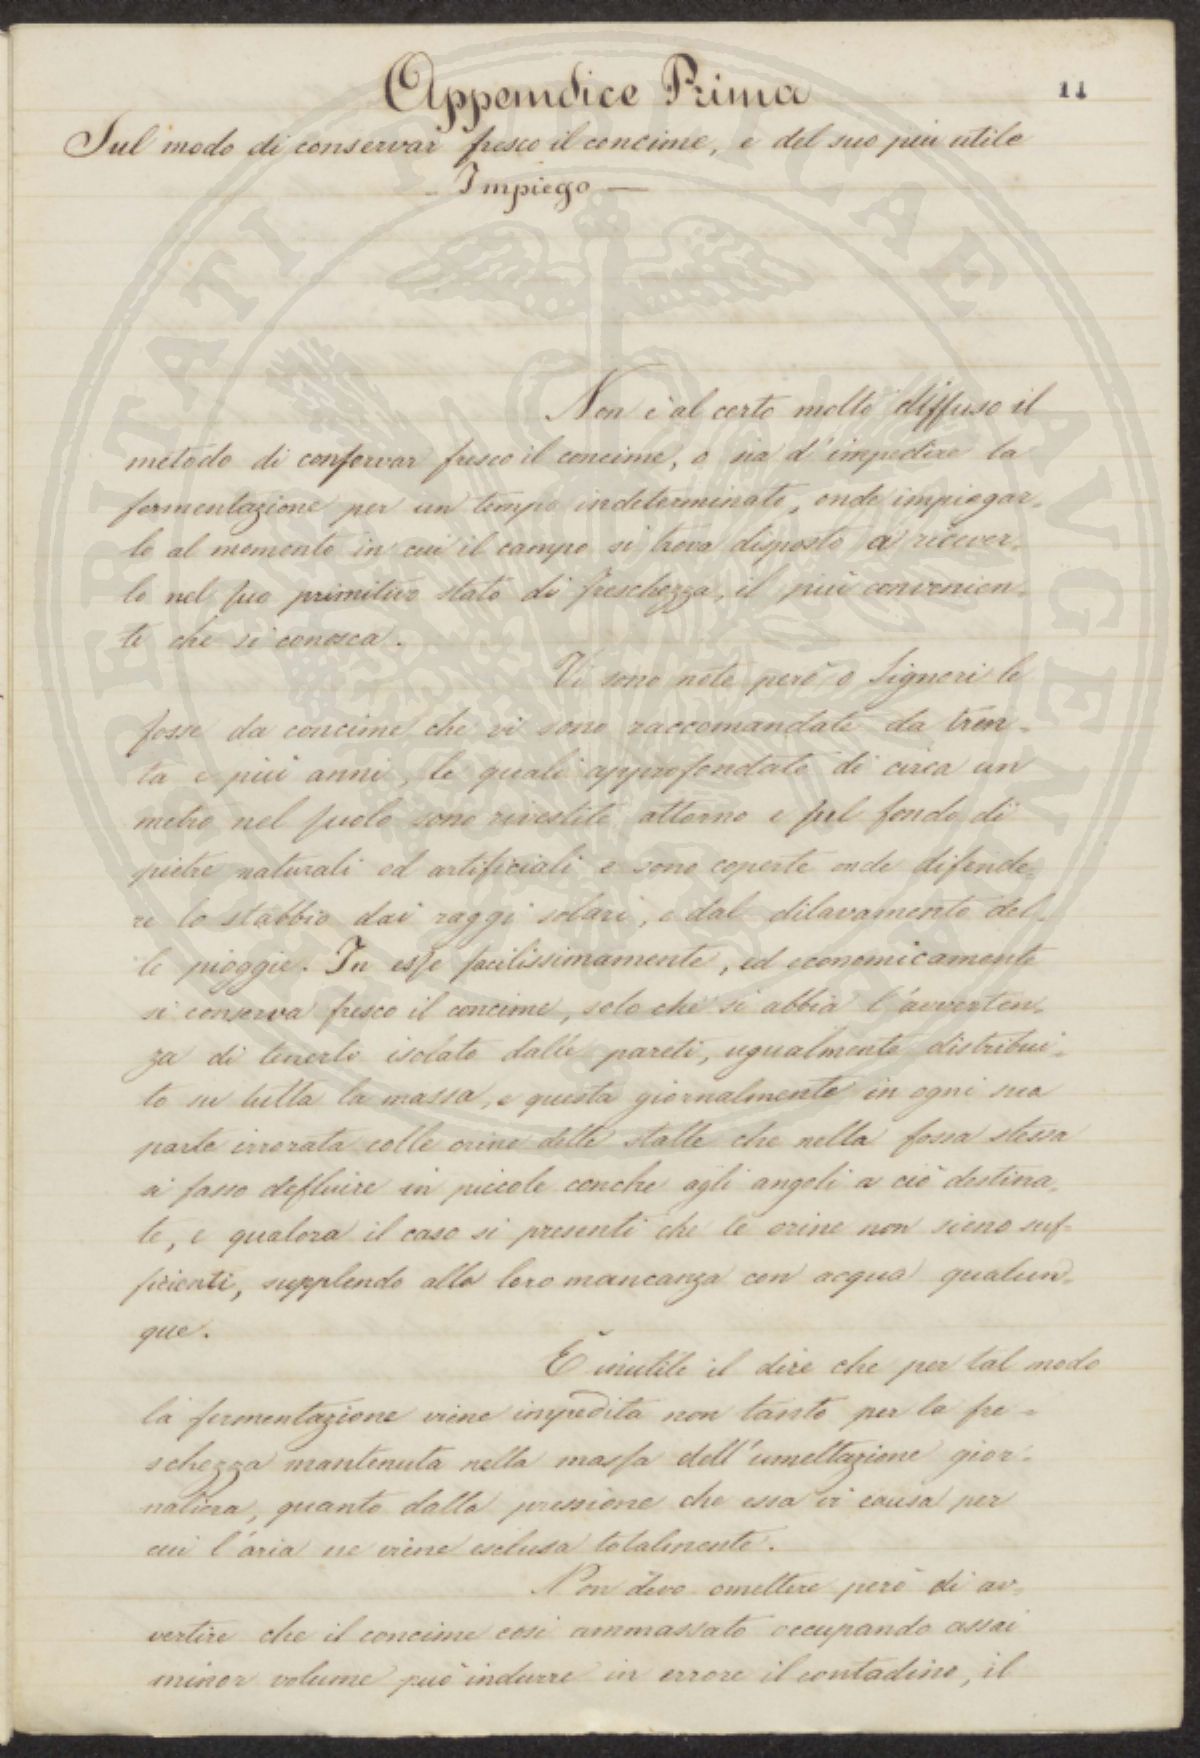 11
Appendice Prima
Sul modo di conservar fresco il concime, e del suo più utile
- Impiego -
Non è al certo molto diffuso il
metodo di conservar fresco il concime, o sia d'impedire la
fermentazione per un tempo indeterminato, onde impiegar-
lo al momento in cui il campo si trova disposto a ricever-
lo nel suo primitivo stato di freschezza, il più convenien-
te che si conosca.
Vi sono note però o Signori le
fosse da concime che vi sono raccomandate da tren-
ta e più anni, le quali approfondate di circa un
metro nel suolo sono rivestite attorno e sul fondo di
pietre naturali od artificiali e sono coperte onde difende-
re lo stabbio dai raggi solari, e dal dilavamento del-
le pioggie. In esse facilissimamente, ed economicamente
si conserva fresco il concime, solo che si abbia l'avverten-
za di tenerlo isolato dalle pareti, ugualmente distribui-
to su tutta la massa, e questa giornalmente in ogni sua
parte irrorata colle orine delle stalle che nella fossa stessa
si fanno defluire in piccole conche agli angoli a ciò destina-
te, e qualora il caso si presenti che le orine non sieno suf-
ficienti, supplendo alla loro mancanza con acqua qualun-
que.
È inutile il dire che per tal modo
la fermentazione viene impedita non tanto per la fre-
schezza mantenuta nella massa dell'umettazione gior-
naliera, quanto dalla pressione che essa vi causa per
cui l'aria ne viene esclusa totalmente.
Non devo omettere però di av-
vertire che il concime così ammassato occupando assai
minor volume può indurre in errore il contadino, il